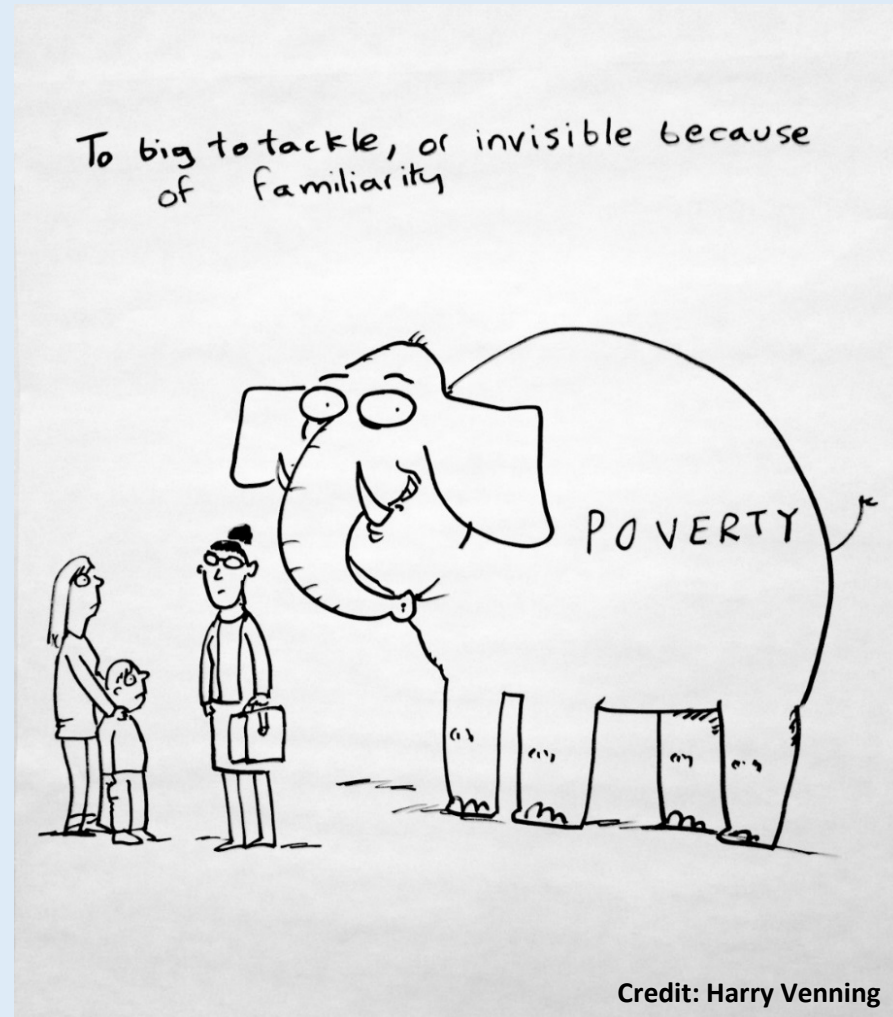 To big to tackle, or invisible because
of familiarity
POVERTY
Credit: Harry Venning